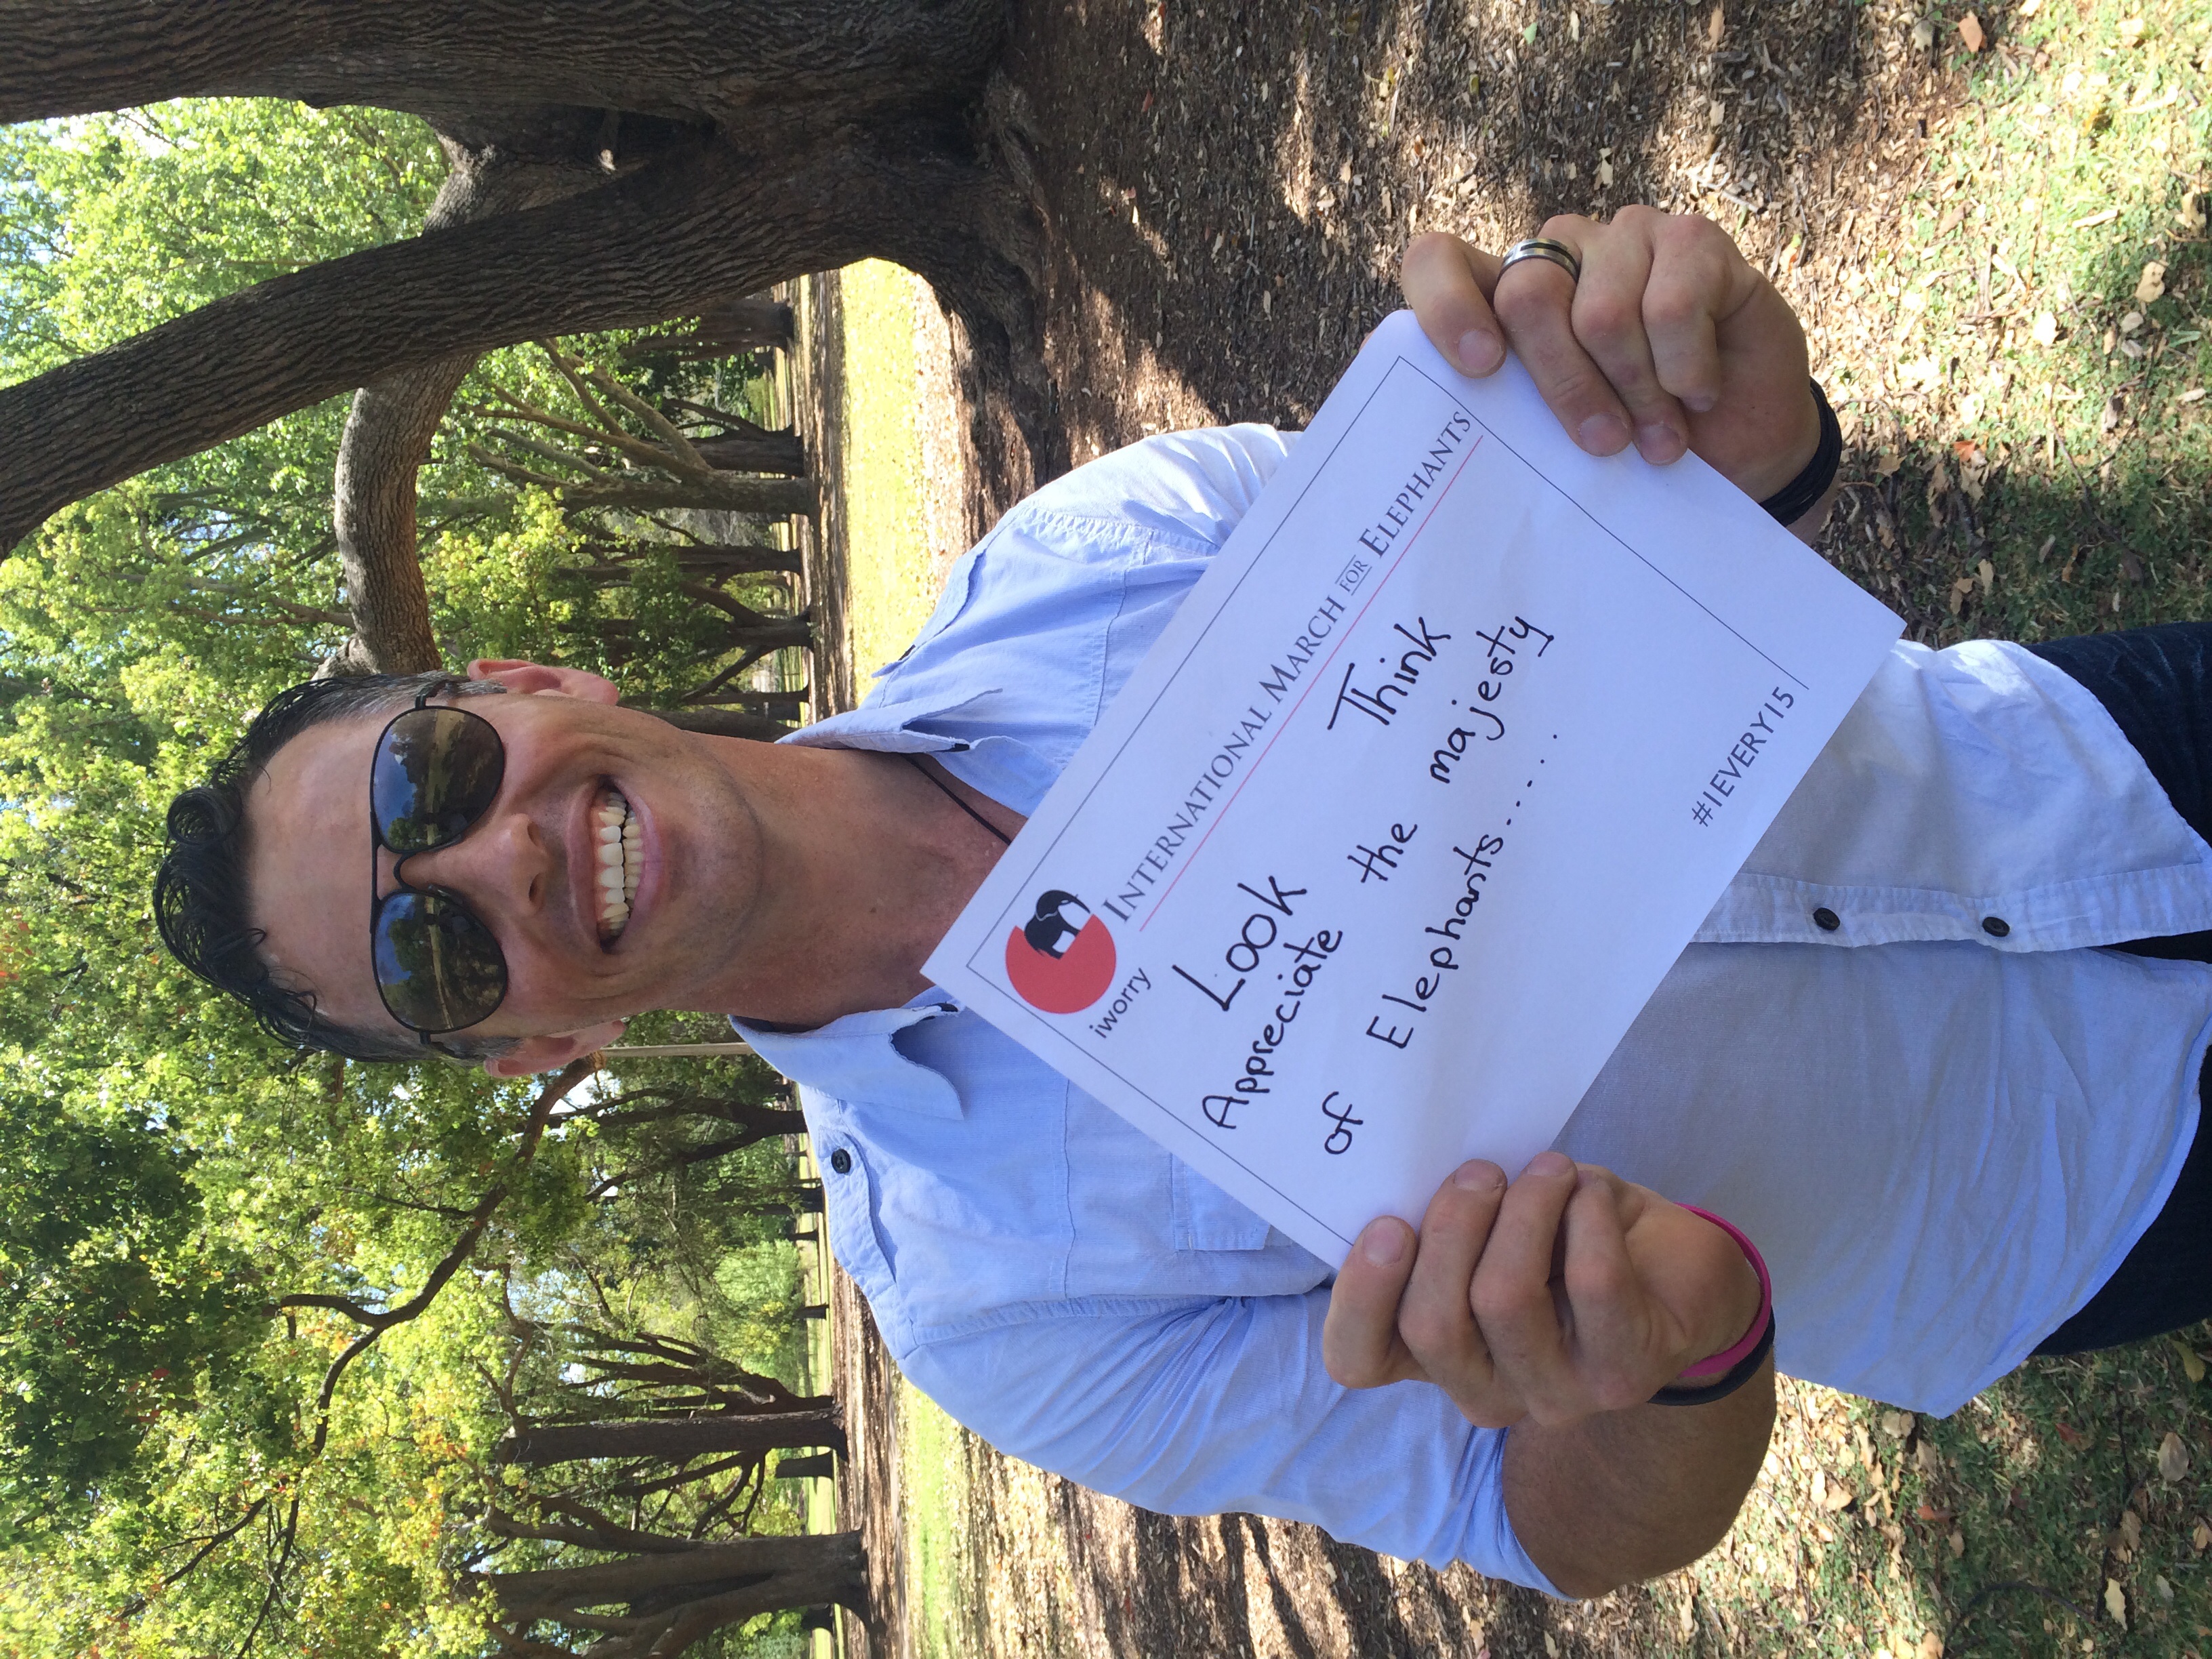 iworry
INTERNATIONAL MARCH FOR ELEPHANTS
Look Think
Appreciate the majesty
of Elephants.....
#IEVERY15